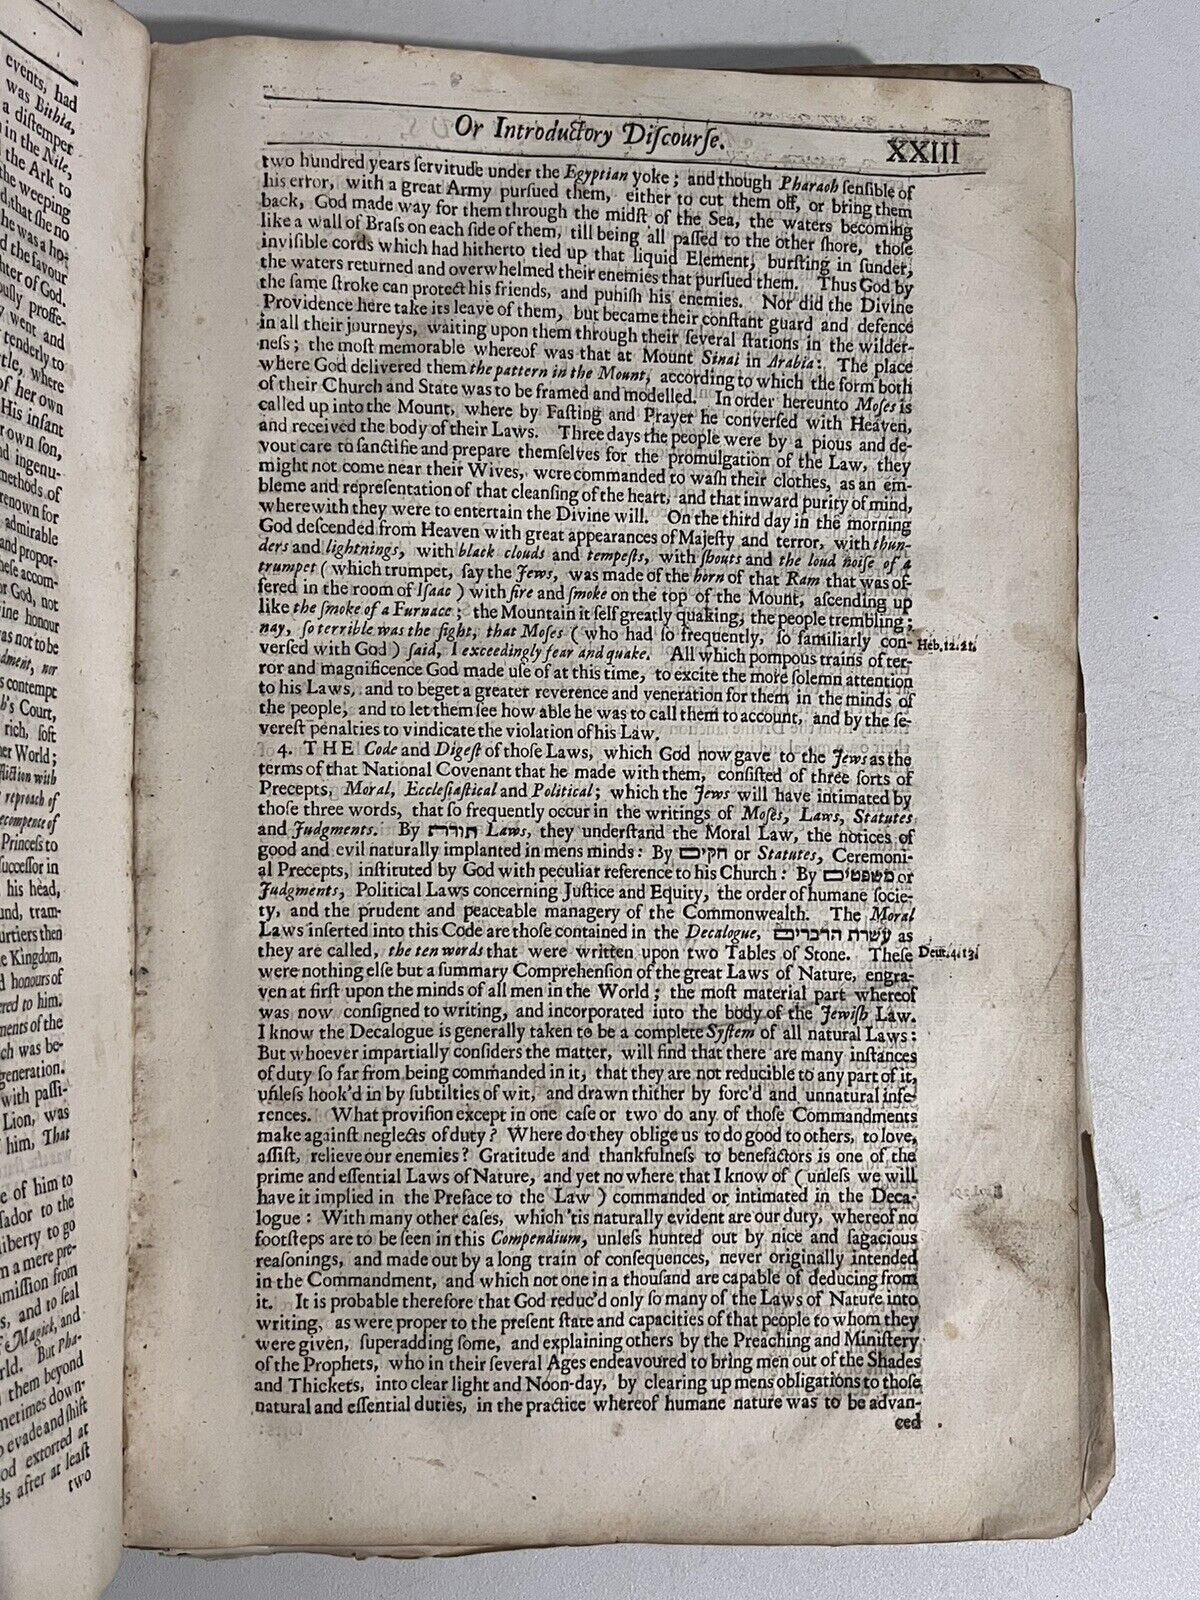 events, had
was Bithia,
a distemper
in the Nile,
the Ark to
the weeping
d, that she no
he was a ho-
d the savour
hter of God.
ously profes-
y went and
tenderly to
tle, where
of her own
His infant
r own son,
nd ingenu-
methods of
renown for
admirable
and propor-
hese accom-
or God, not
ine honour
as not to be
dment, nor
s contempt
b's Court,
rich, soft
her World;
fliction with
reproach of
ecompence of
Princess to
successor in
his head,
und, tram-
urtiers then
e Kingdom,
d honours of
ered to him.
ments of the
ch was be-
generation.
with passi-
Lion, was
him, That
e of him to
sador to the
liberty to go
m a mere pre-
mission from
s, and to seal
f Magick, and
rld. But Pha-
them beyond
metimes down-
o evade and shift
od extorted at
ds after at least
two
Or Introductory Diſcourſe.
XXIII
two hundred years ſervitude under the Egyptian yoke; and though Pharaoh ſenſible of
his error, with a great Army purſued them, either to cut them off, or bring them
back, God made way for them through the midſt of the Sea, the waters becoming
like a wall of Braſs on each ſide of them, till being all paſſed to the other ſhore, thoſe
inviſible cords which had hitherto tied up that liquid Element, burſting in ſunder,
the waters returned and overwhelmed their enemies that purſued them. Thus God by
the ſame ſtroke can protect his friends, and puniſh his enemies. Nor did the Divine
Providence here take its leave of them, but became their conſtant guard and defence
in all their journeys, waiting upon them through their ſeveral ſtations in the wilder-
neſs; the moſt memorable whereof was that at Mount Sinai in Arabia: The place
where God delivered them the pattern in the Mount, according to which the form both
of their Church and State was to be framed and modelled. In order hereunto Moſes is
called up into the Mount, where by Faſting and Prayer he converſed with Heaven,
and received the body of their Laws. Three days the people were by a pious and de-
vout care to ſanctifie and prepare themſelves for the promulgation of the Law, they
might not come near their Wives, were commanded to waſh their clothes, as an em-
bleme and repreſentation of that cleanſing of the heart, and that inward purity of mind,
wherewith they were to entertain the Divine will. On the third day in the morning
God deſcended from Heaven with great appearances of Majeſty and terror, with thun-
ders and lightnings, with black clouds and tempeſts, with ſhouts and the loud noiſe of a
trumpet (which trumpet, ſay the Jews, was made of the horn of that Ram that was of-
fered in the room of Iſaac) with fire and ſmoke on the top of the Mount, aſcending up
like the ſmoke of a Furnace; the Mountain it ſelf greatly quaking, the people trembling;
nay, ſo terrible was the ſight, that Moſes (who had ſo frequently, ſo familiarly con-
verſed with God) ſaid, I exceedingly fear and quake. All which pompous trains of ter-
Heb. 12. 21.
ror and magnificence God made uſe of at this time, to excite the more ſolemn attention
to his Laws, and to beget a greater reverence and veneration for them in the minds of
the people, and to let them ſee how able he was to call them to account, and by the ſe-
vereſt penalties to vindicate the violation of his Law.
4. THE Code and Digeſt of thoſe Laws, which God now gave to the Jews as the
terms of that National Covenant that he made with them, conſiſted of three ſorts of
Precepts, Moral, Eccleſiaſtical and Political; which the Jews will have intimated by
thoſe three words, that ſo frequently occur in the writings of Moſes, Laws, Statutes
and Judgments. By תורות Laws, they underſtand the Moral Law, the notices of
good and evil naturally implanted in mens minds: By חקים or Statutes, Ceremoni-
al Precepts, inſtituted by God with peculiar reference to his Church: By משפטים or
Judgments, Political Laws concerning Juſtice and Equity, the order of humane ſocie-
ty, and the prudent and peaceable managery of the Commonwealth. The Moral
Laws inſerted into this Code are thoſe contained in the Decalogue, עשרת הדברים as
they are called, the ten words that were written upon two Tables of Stone. Theſe
Deut. 4. 13.
were nothing elſe but a ſummary Comprehenſion of the great Laws of Nature, engra-
ven at firſt upon the minds of all men in the World; the moſt material part whereof
was now conſigned to writing, and incorporated into the body of the Jewiſh Law.
I know the Decalogue is generally taken to be a complete Syſtem of all natural Laws:
But whoever impartially conſiders the matter, will find that there are many inſtances
of duty ſo far from being commanded in it, that they are not reducible to any part of it,
unleſs hook'd in by ſubtilties of wit, and drawn thither by forc'd and unnatural infe-
rences. What proviſion except in one caſe or two do any of thoſe Commandments
make againſt neglects of duty? Where do they oblige us to do good to others, to love,
aſſiſt, relieve our enemies? Gratitude and thankfulneſs to benefactors is one of the
prime and eſſential Laws of Nature, and yet no where that I know of (unleſs we will
have it implied in the Preface to the Law) commanded or intimated in the Deca-
logue: With many other caſes, which 'tis naturally evident are our duty, whereof no
footſteps are to be ſeen in this Compendium, unleſs hunted out by nice and ſagacious
reaſonings, and made out by a long train of conſequences, never originally intended
in the Commandment, and which not one in a thouſand are capable of deducing from
it. It is probable therefore that God reduc'd only ſo many of the Laws of Nature into
writing, as were proper to the preſent ſtate and capacities of that people to whom they
were given, ſuperadding ſome, and explaining others by the Preaching and Miniſtery
of the Prophets, who in their ſeveral Ages endeavoured to bring men out of the Shades
and Thickets, into clear light and Noon-day, by clearing up mens obligations to thoſe
natural and eſſential duties, in the practice whereof humane nature was to be advan-
ced